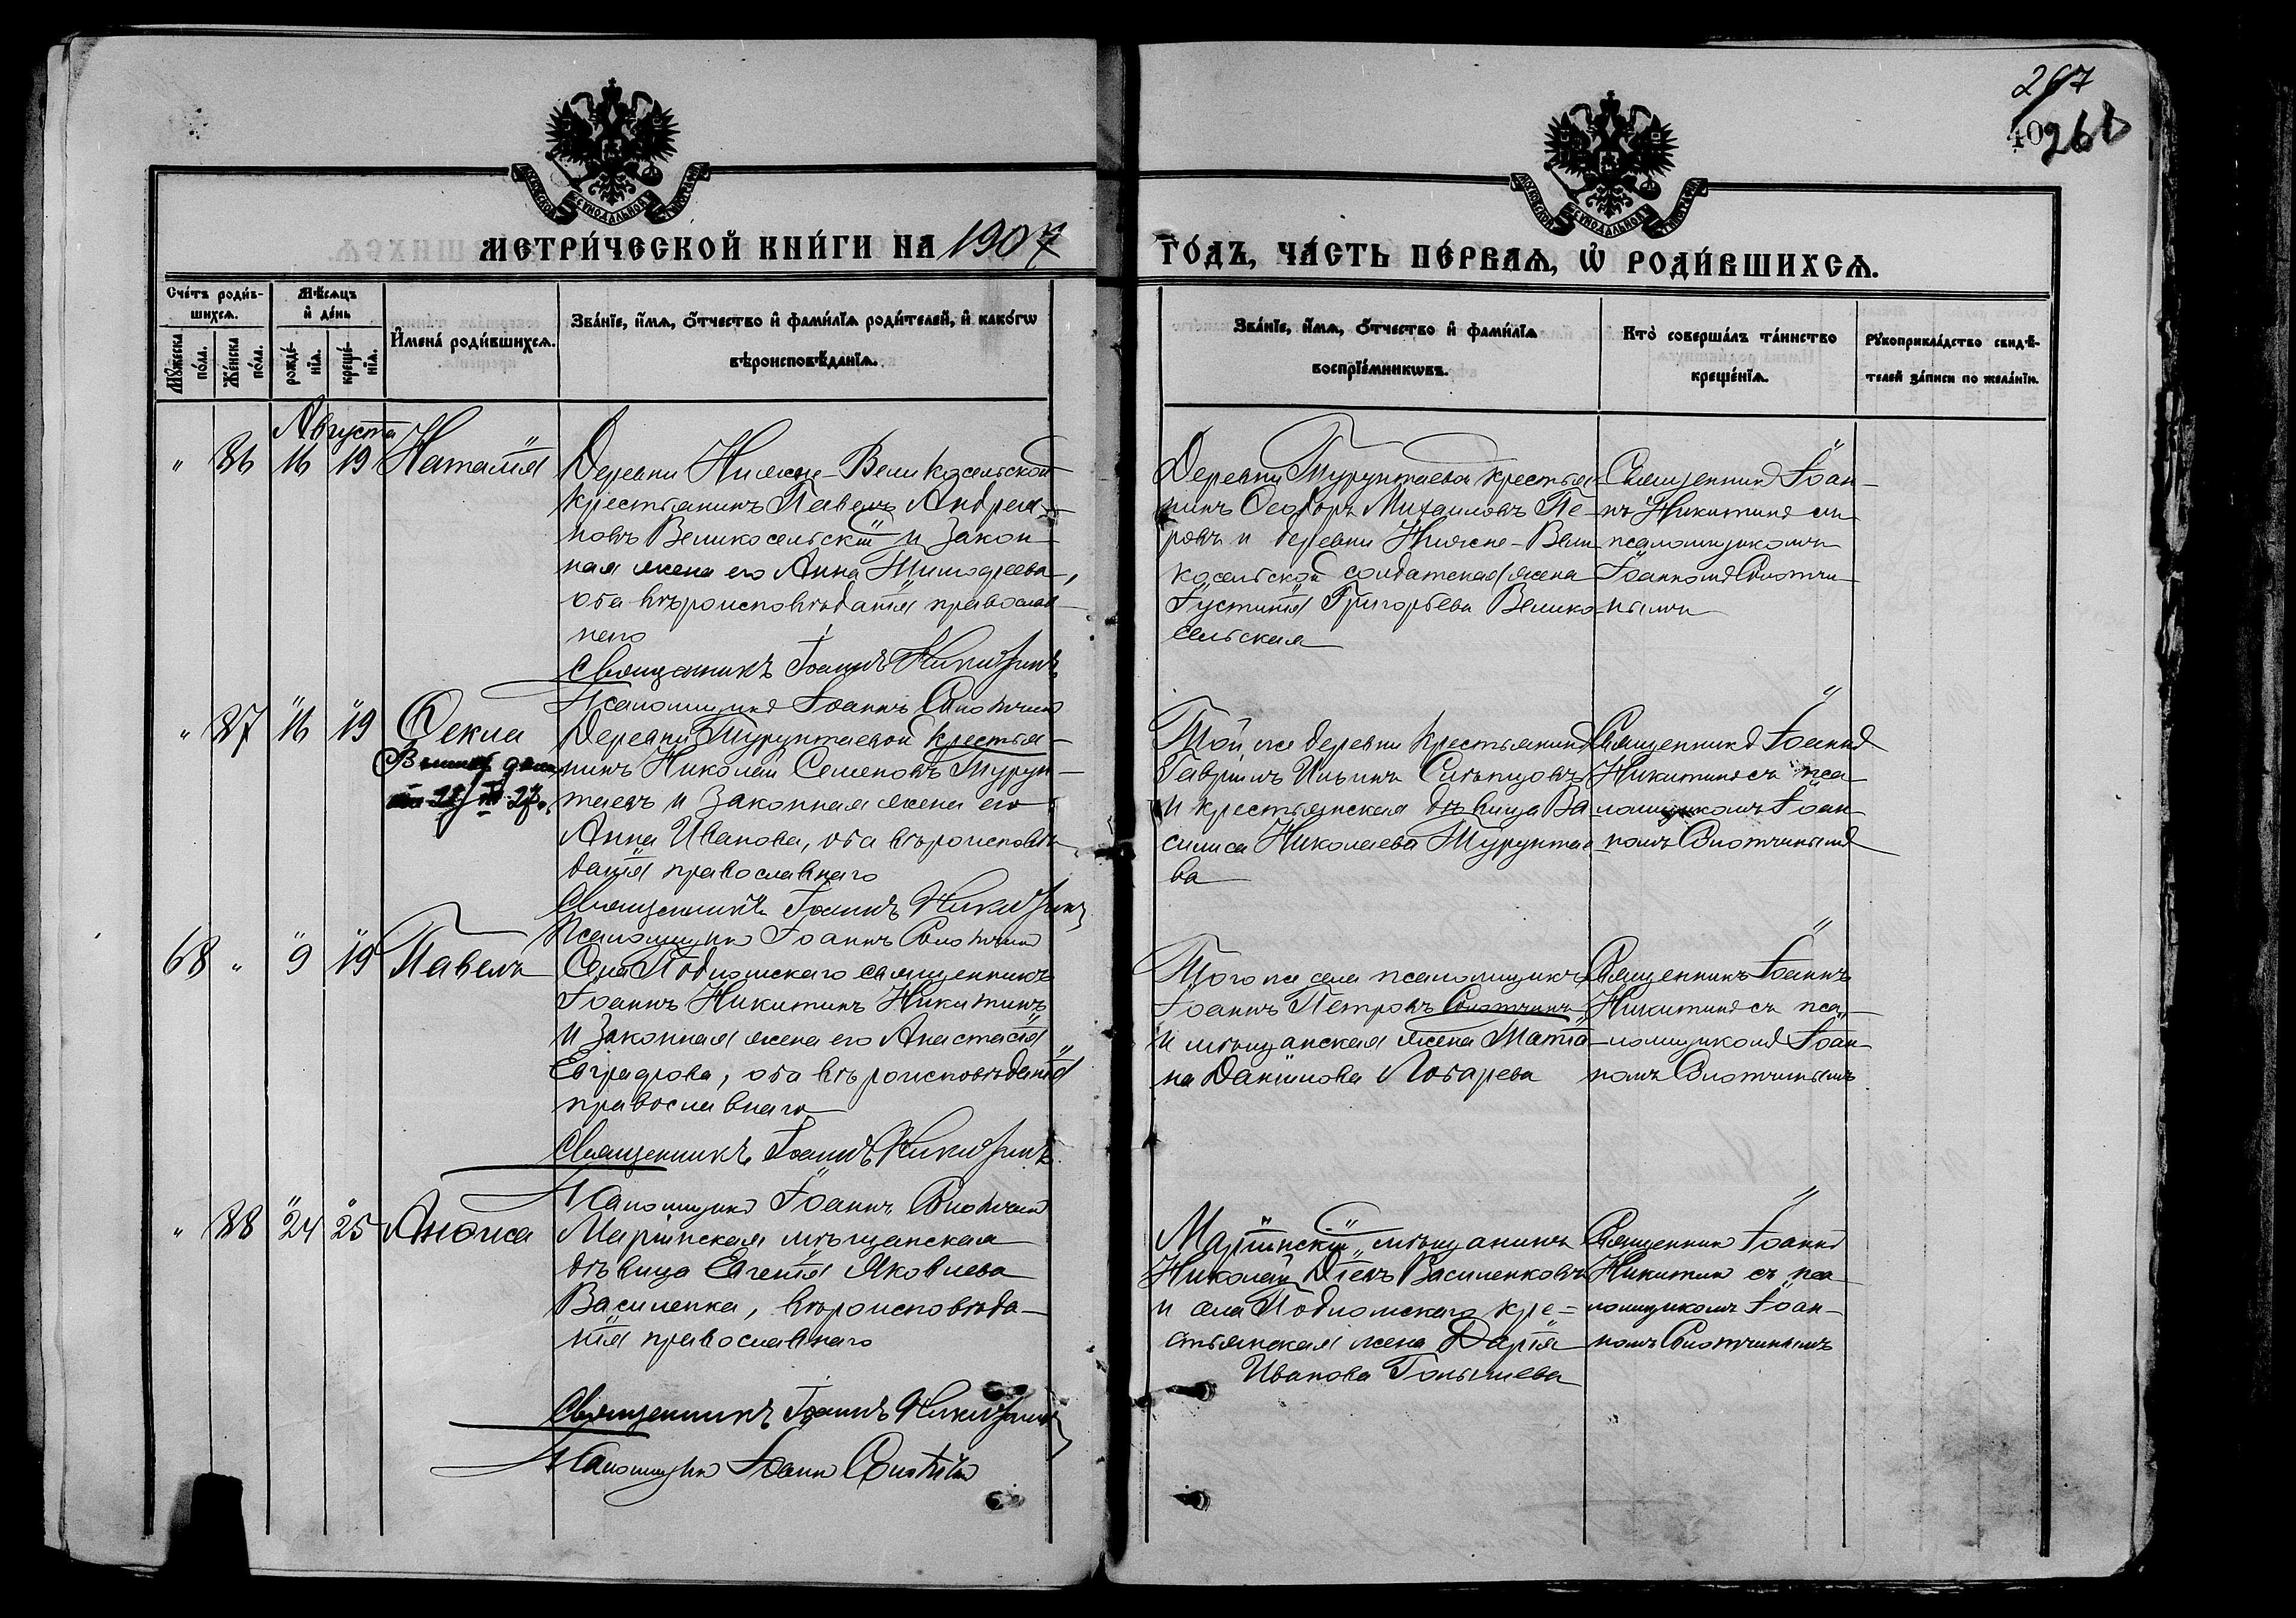 267
40 268
МЕТРИ́ЧЕСКОЙ КНИ́ГИ НА 1907
ГО́ДЪ, ЧА́СТЬ ПЕ́РВАЯ, Ѡ҆ РОДИ́ВШИХСЯ.
Сче́тъ роди́в-
шихся.
Мѣ́сяцъ
и҆ де́нь
И҆мена̀ роди́вшихся.
Зва́нїе, и҆́мя, ѻ҆́тчество и҆ фами́лїя роди́телей, и҆ како́гѡ
вѣроисповѣ́данїя.
Мꙋ́жеска
по́ла.
Же́нска
по́ла.
рожде́-
нїя.
креще́-
нїя.
Зва́нїе, и҆́мя, ѻ҆́тчество и҆ фами́лїя
воспрїе́мникѡвъ.
Кто̀ соверша́лъ та́инство
креще́нїя.
Рꙋкоприкла́дство свидѣ́-
телей за́писи по жела́нїю.
Августа
" 86 16 19 Наталія
Деревни Нижне-Великосельской
крестьянинъ Павелъ Андрея-
новъ Великосельскій и закон-
ная жена его Анна Тимофеева,
оба вѣроисповѣданія православ-
наго
Священникъ Іоаннъ Никитинъ
Псаломщикъ Іоаннъ
Деревни Турунтаевой крестья-
нинъ Ѳеодоръ Михаиловъ Пе-
ровъ и деревни Нижне-Вели
косельской солдатская жена
Іустинія Григорьева Велико-
сельская
Священникъ Іоан-
нъ Никитинъ съ
псаломщикомъ
Іоанномъ
" 87 16 19 Ѳекла
27 г.
Деревни Турунтаевой крестья-
нинъ Николай Семеновъ Турун-
таевъ и законная жена его
Анна Иванова, оба вѣроисповѣ-
данія православнаго
Священникъ Іоаннъ Никитинъ
Псаломщикъ Іоаннъ
Той же деревни крестьянинъ
Гавріилъ Ильинъ Слѣпцовъ
и крестьянская дѣвица Ва-
силиса Николаева Турунтае-
ва
Священникъ Іоаннъ
Никитинъ съ пса-
ломщикомъ Іоан-
номъ
68 " 9 19 Павелъ
Села Подломскаго священникъ
Іоаннъ Никитинъ Никитинъ
и законная жена его Анастасія
Евграфова, оба вѣроисповѣданія
православнаго
Священникъ Іоаннъ Никитинъ
Псаломщикъ Іоаннъ
Того же села псаломщикъ
Іоаннъ Петровъ
и мѣщанская жена Матіа-
на Даніилова Лобарева
Священникъ Іоаннъ
Никитинъ съ пса-
ломщикомъ Іоан-
номъ
" 88 24 25 Анѳиса
Маріинская мѣщанская
дѣвица Евгенія Яковлева
Василенка, вѣроисповѣда-
нія православнаго
Священникъ Іоаннъ Никитинъ
Псаломщикъ Іоаннъ
Маріинскій мѣщанинъ
Николай Діевъ Василенковъ
и села Подломскаго кре-
стьянская жена Дарія
Иванова Голышева
Священникъ Іоаннъ
Никитинъ съ пса-
ломщикомъ Іоан-
номъ